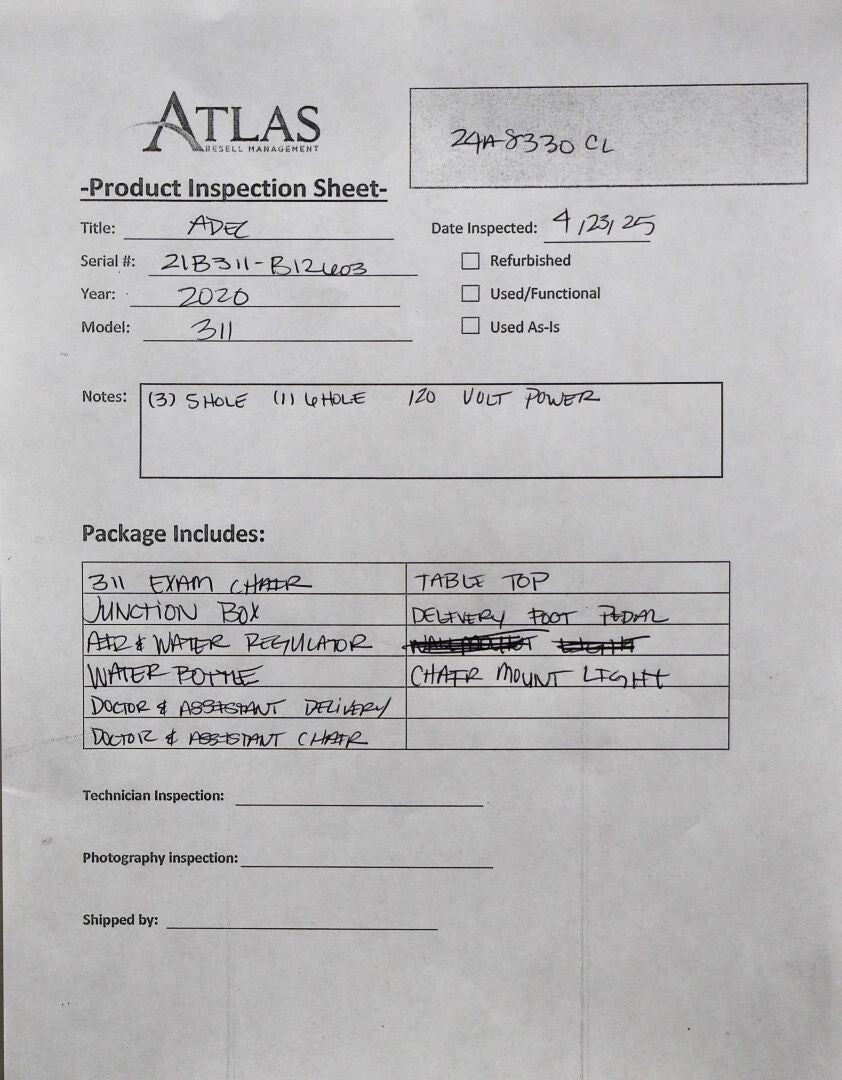 ATLAS
RESELL MANAGEMENT
24A-8330 CL
-Product Inspection Sheet-
Title: ADEC
Date Inspected: 4/23/25
Serial #: 21B311-B12603
Refurbished
Year: 2020
Used/Functional
Model: 311
Used As-Is
Notes: (3) 5 HOLE (1) 6 HOLE 120 VOLT POWER
Package Includes:
311 EXAM CHAIR
TABLE TOP
JUNCTION BOX
DELIVERY FOOT PEDAL
AIR & WATER REGULATOR
WATER BOTTLE
CHAIR MOUNT LIGHT
DOCTOR & ASSISTANT DELIVERY
DOCTOR & ASSISTANT CHAIR
Technician Inspection:
Photography inspection:
Shipped by: